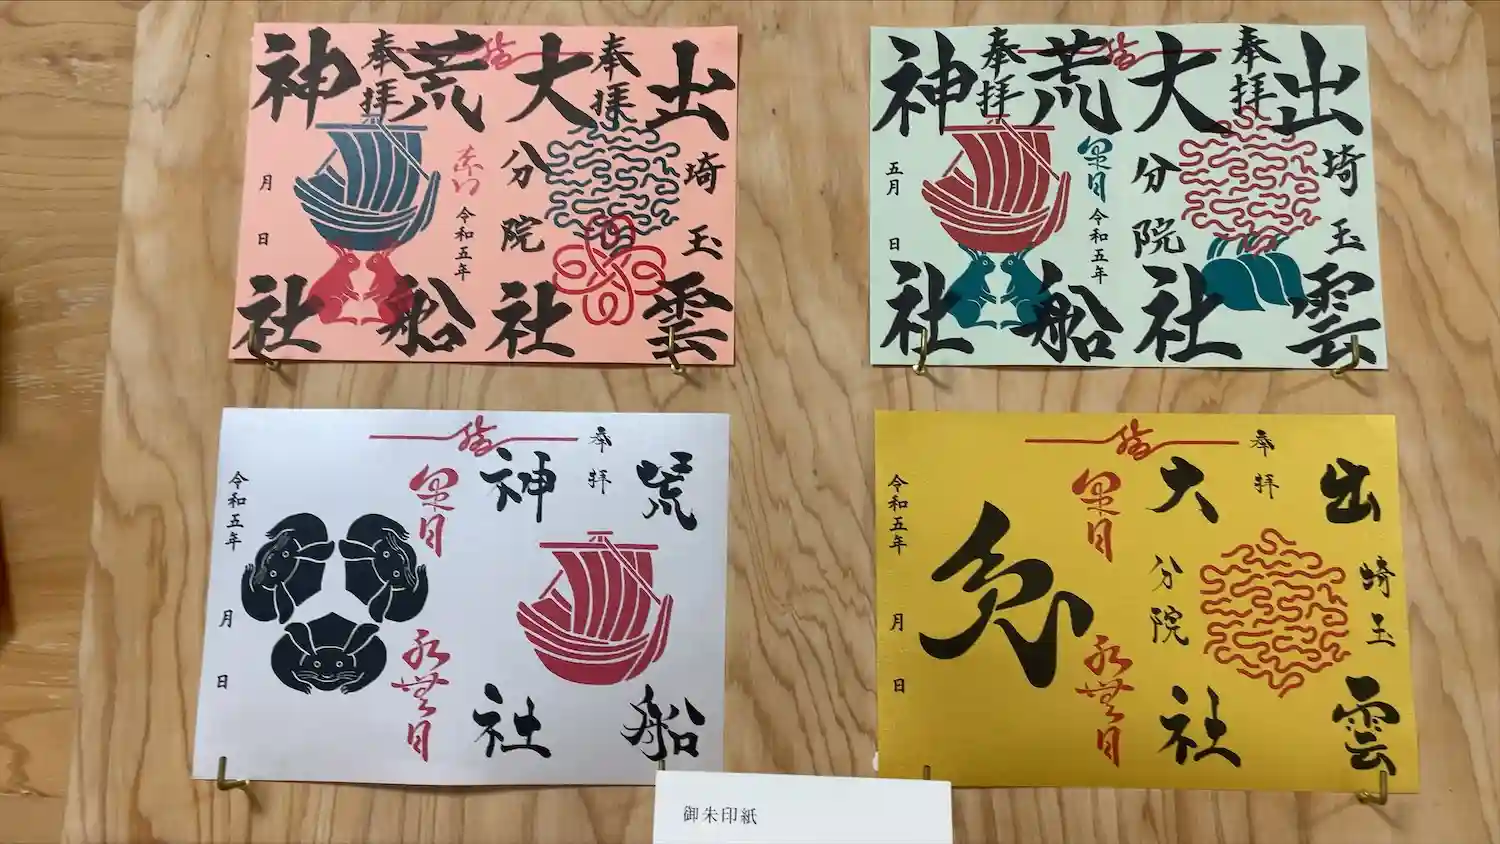 出雲
奉拝
埼玉
大社
分院
結
荒船
奉拝
令和五年
神社
月
日
出雲
奉拝
埼玉
大社
分院
結
荒船
皐月
奉拝
令和五年
神社
五月
日
荒船
奉拝
神社
結
皐月
水無月
令和五年
月
日
出雲
埼玉
奉拝
大社
分院
結
皐月
水無月
令和五年
月
日
御朱印紙